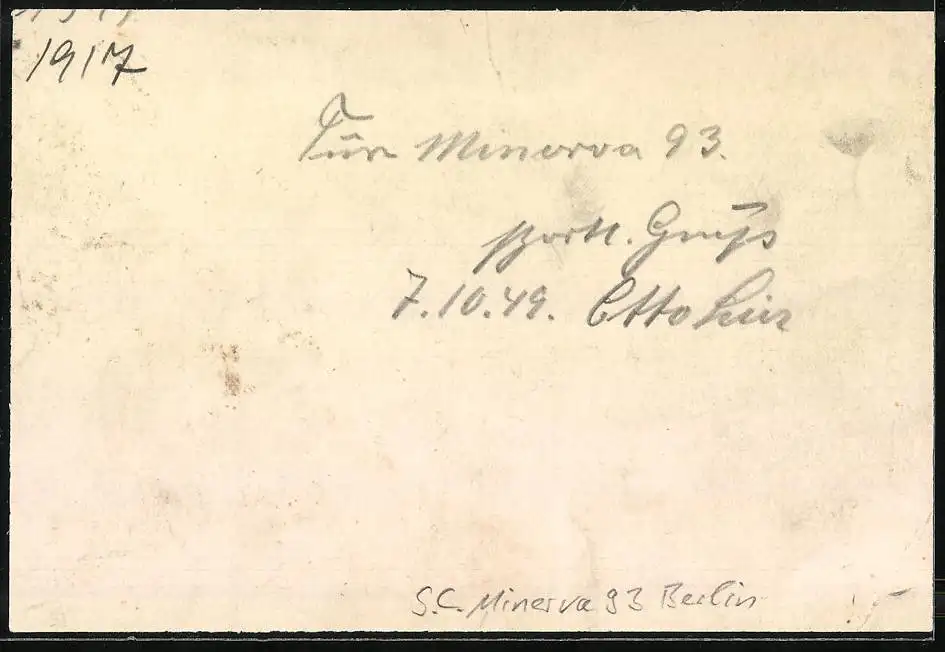 1917
Für Minerva 93.
sportl. Gruß
7.10.49. Otto
S.C. Minerva 93 Berlin